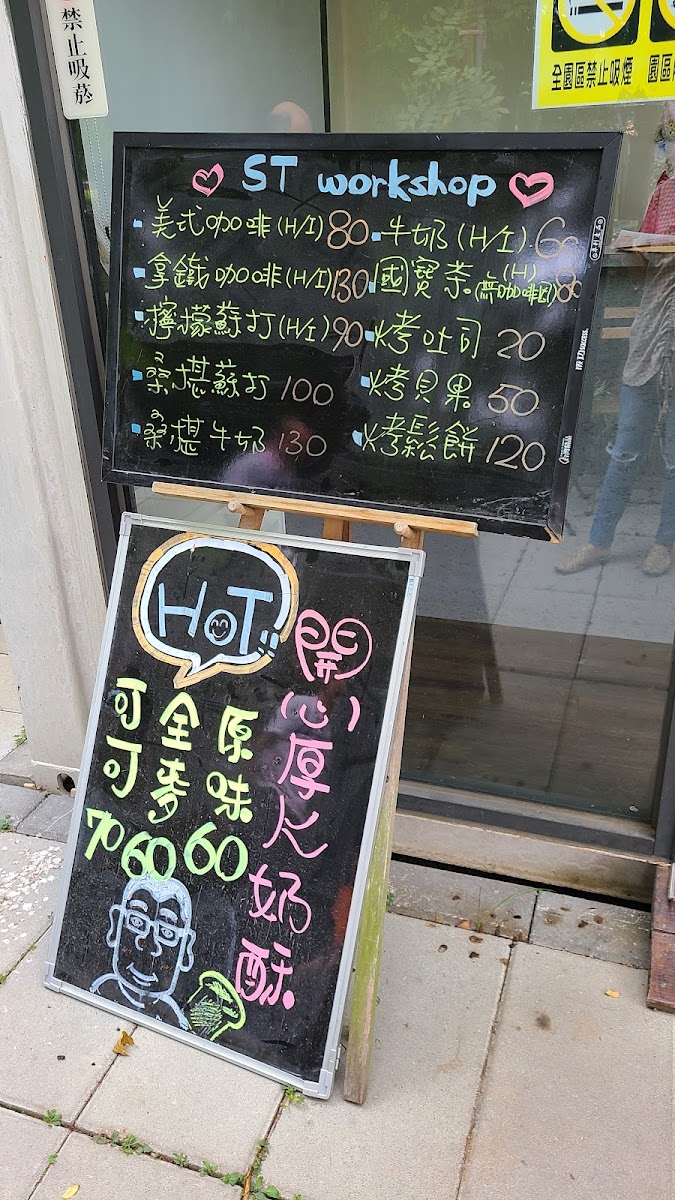 禁止吸菸
全園區禁止吸煙 園區
ST workshop
美式咖啡(H/I) 80
拿鐵咖啡(H/I) 130
檸檬蘇打(H/I) 90
桑椹蘇打 100
桑椹牛奶 130
牛奶(H/I). 60
國寶茶(H)(無咖啡因) 80
烤吐司 20
烤貝果 50
烤鬆餅 120
HOT!!
開心厚ㄟ奶酥
原味 60
全麥 60
可可 70